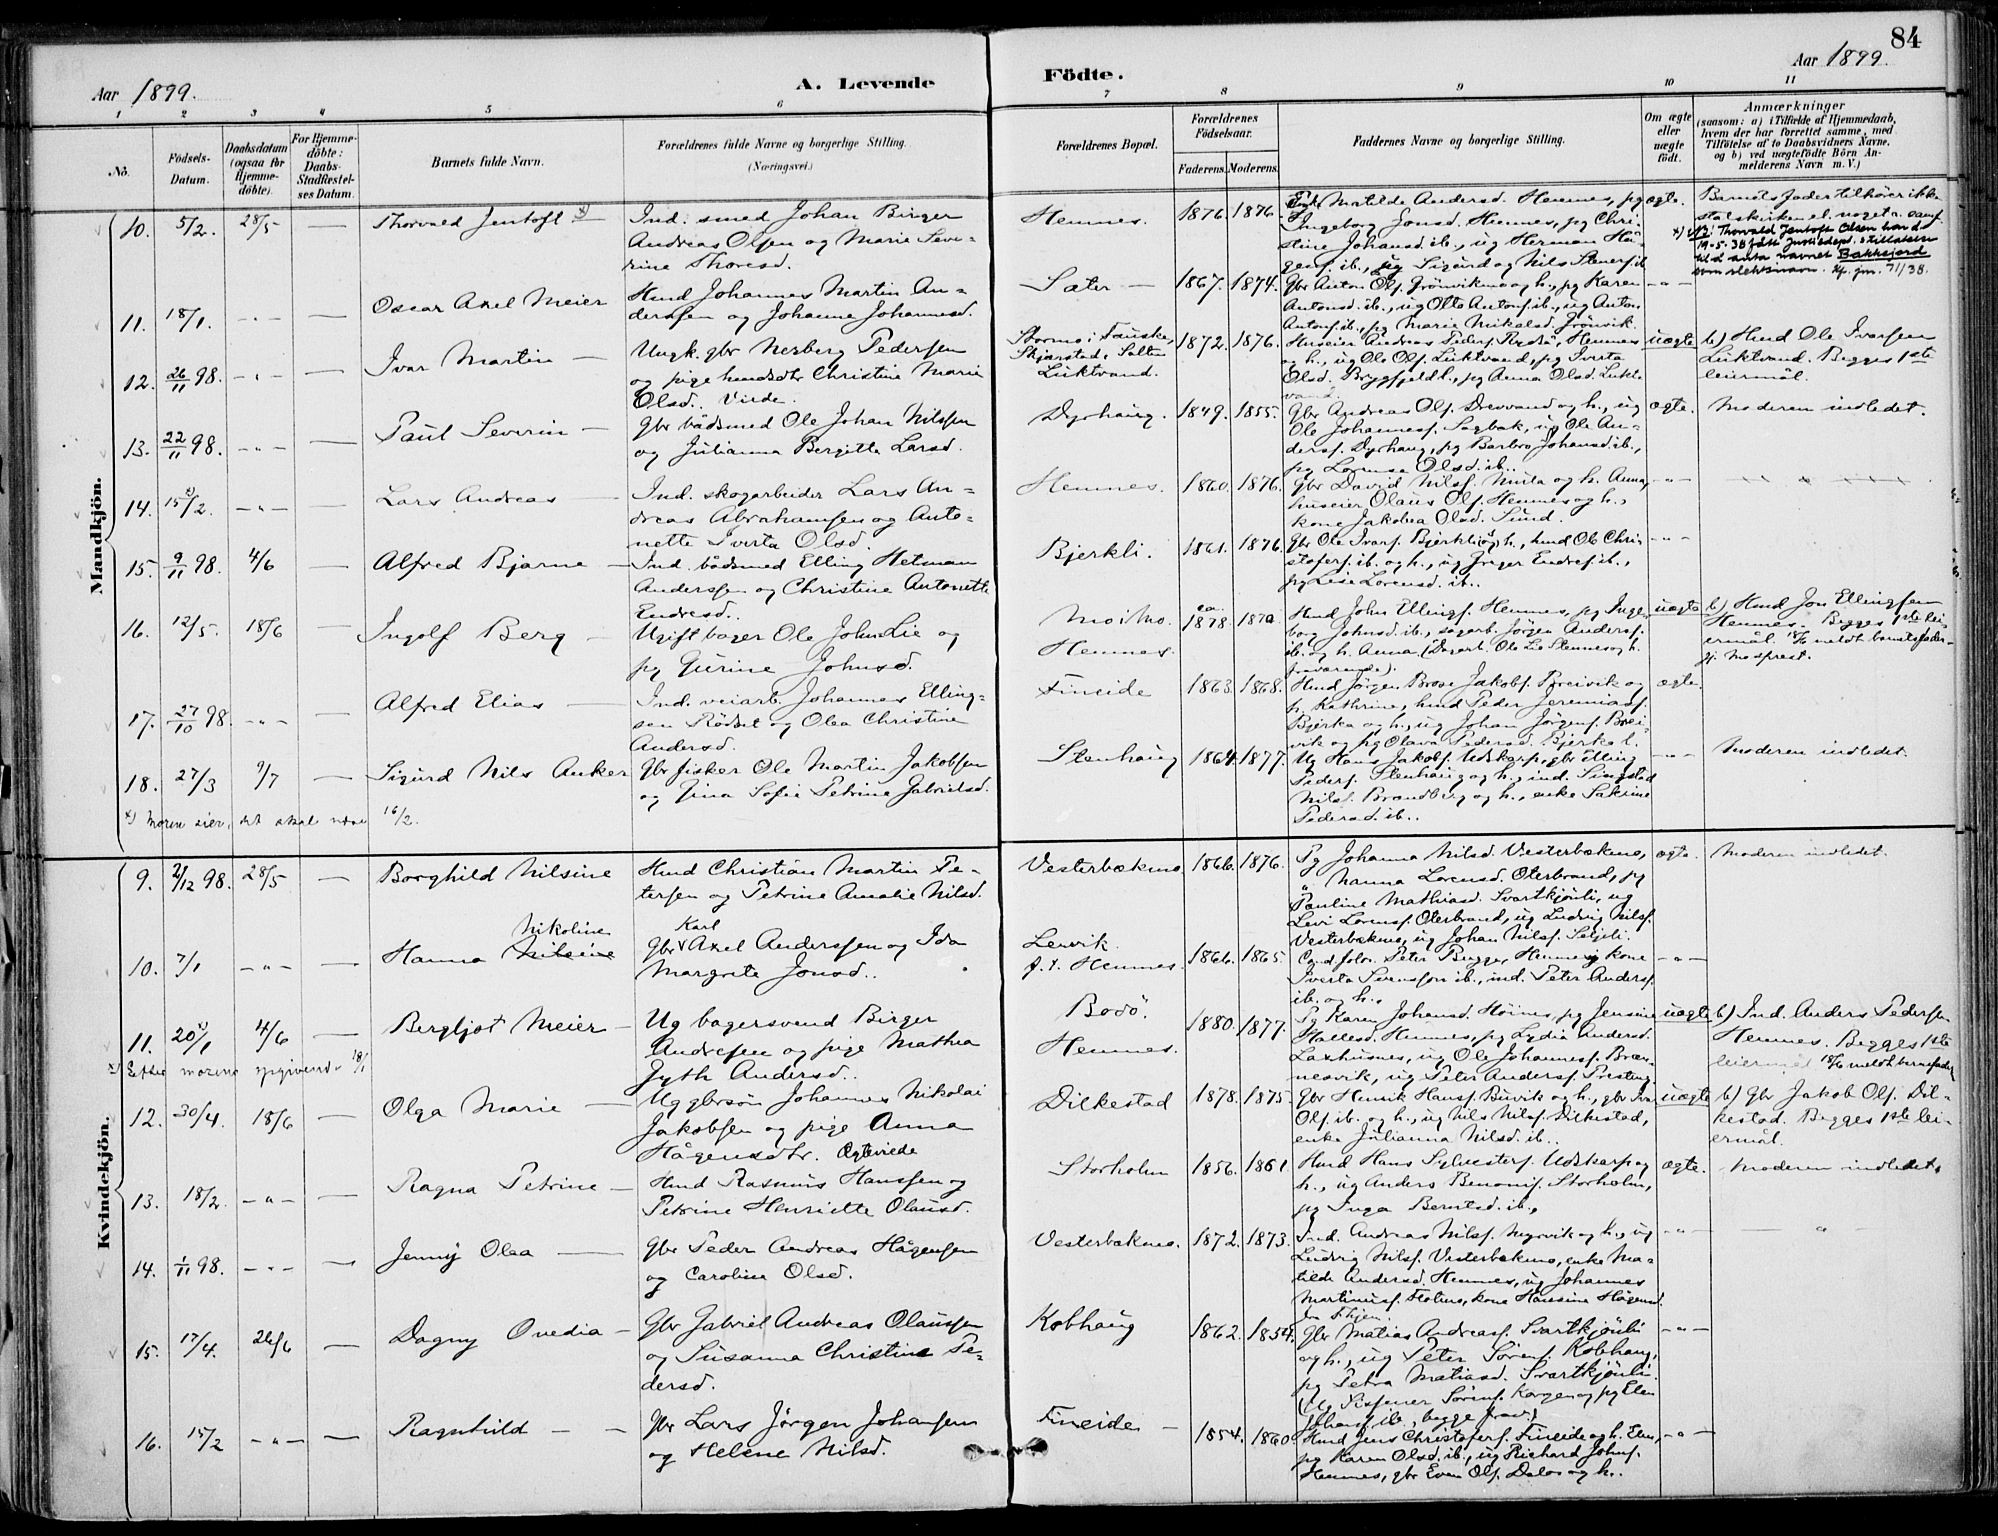 84
Aar 1899.
A. Levende
Födte.
Aar 1899.
1 2 3 4 5 6 7 8 9 10 11
No.
Födsels-Datum.
Daabsdatum (ogsaa for Hjemme-döbte).
For Hjemme-döbte: Daabs-Stadfæstel-ses Datum.
Barnets fulde Navn.
Forældrenes fulde Navne og borgerlige Stilling.
(Næringsvei.)
Forældrenes Bopæl.
Forældrenes Födselsaar.
Faderens. Moderens.
Faddernes Navne og borgerlige Stilling.
Om ægte eller uægte födt.
Anmærkninger
(saasom: a) i Tilfælde af Hjemmedaab, hvem der har forrettet samme, med Tilföielse af to Daabsvidners Navne, og b) ved uægtefödte Börn An-melderens Navn m. V.)
Mandkjön.
10. 5/2. 28/5 — Thorvald Jentoft x) —
Ind. smed Johan Birger
Andreas Olsen og Marie Seve-
rine Thoresd.
Hemnes. 1876. 1876.
Matilde Andersd. Hemnes, pg
Ingeborg Jonsd. Hemnes, pg Chri-
stine Johansd. ib., ug Herman Hå-
gens. ib., ug Sigurd og Nils Stenersf. ib.
ægte.
Barnets fader tilhører ikke
statskirken el. noget a. samf.
x) NB: Thorvald Jentoft Olsen har d.
19-5-38 fått Justisdepd. s tillatelse
til å anta navnet Bakksjord
som slektsnavn. Kfr. jnr. 71/38.
11. 18/1. - " - — Oscar Axel Meier
Hmd Johannes Martin An-
dersen og Johanne Johannesd.
Sæter — 1867. 1874.
Gbr Anton Olsf. Grönvikmo og h., pg Karen
Antonsd. ib., ug Otto Antonsf. ib., ug Anton
Antonsf. ib., pg Marie Nikolsd. Grönvik.
- " -
12. 26/11 98. - " - — Ivar Martin —
Ungk. gbr Nerberg Pedersen
og pige hmdsdtr Christine Marie
Olsd. Viede.
Stormo i Fauske,
Skjerstad, Salten
Luktvand.
1872. 1876.
Huseier Andreas Pedersf. Hemnes
og h., ug Ole Olsf. Luktvand, pg Iverta
Olsd. Brygfjeldl., pg Anna Olsd. Lukt-
vand.
uægte
b) Hmd Ole Ivarsen
Luktvand. Begges 1ste
leiermål.
13. 22/11 98. - " - — Paul Severin —
Gbr bådsmed Ole Johan Nilssen
og Julianna Bergitte Larsd.
Dyrhaug. 1849. 1855.
Gbr Andreas Olsf. Drevvand og h., ug
Ole Johannesf. Sagbak, ug Ole An-
dersf. Dyrhaug, pg Barbro Johansd. ib.,
pg Lorense Olsd. ib..
ægte.
Moderen indledet.
14. 15 x)/2. - " - — Lars Andreas —
Ind. skogarbeider Lars An-
dreas Abrahamsen og Anto-
nette Iverta Olsd.
Hemnes. 1860. 1876.
Gbr David Nilsf. og h. Anna,
huseier Olaus Olsf. Hemnes og h.,
kone Jakobea Olsd. Sund.
- " -
15. 9/11 98. 4/6 — Alfred Bjarne —
Ind. bådsmed Elling Hetman
Anderssen og Christine Antonette
Endresd..
Bjerkli. 1861. 1876.
Gbr Ole Ivarsf. Bjerkli og h., hmd Ole Chri-
stofersf. ib. og h., ug Greger Endresf. ib.,
pg Lise Lorensd. ib..
- " -
16. 12/5. 18/6 — Ingolf Berg —
Ugift bager Ole John Lie og
pg Gurine Johnsd.
Mo i Mo.
Hemnes.
ca. 1878. 1870.
Hmd John Ellingsf. Hemnes, pg Inge-
borg Johnsd. ib., sagarb. Jörgen Andersf.
ib. og h. Anna (Dagarb. Ole Lie Stennes og h.
fraværende).
uægte
b) Hmd Jon Ellingsen
Hemnes. Begges 1ste lei-
ermål. 18/6 meldt barnefader-
gj. Mosprest.
17. 27/10 98. - " - — Alfred Elias —
Ind. veiarb. Johannes Elling-
sen Rödset og Olea Christine
Andersd.
Fineide 1863. 1868.
Hmd Jörgen Brose Jakobsf. Breivik og
h. Kathrine, hmd Peder Jeremiasf.
Bjerka og h., ug Johan Jörgensf. Brei-
vik og pg Olava Pedersd. Bjerka l.
ægte.
18. 27/3 9/7 — Sigurd Nils Anker
Gbr fisker Ole Martin Jakobsen
og Gina Sofie Petrine Gabrielsd.
Stenhaug 1864. 1877.
Ug Hans Jakobsf. Udskarp, gbr Elling
Pedersf. Stenhaug og h., ind. Sivertstad
Nilsf. Brandberg og h., enke Sakrine
Pedersd. ib..
- " -
Moderen indledet.
x) Moren sier, det skal være 16/2.
Kvindekjön.
9. 2/12 98. 28/5 — Borghild Nilsine
Hmd Christian Martin Pe-
tersen og Petrine Amalie Nilsd.
Vesterbækmo 1866. 1876.
Pg Johanna Nilsd. Vesterbækmo,
" Nanna Lorensd. Oterbrand, pg
Pauline Mathiasd. Svartkjönli, ug
Levi Lorensf. Oterbrand, ug Ludvig Nilsf.
Vesterbækmo, ug Johan Nilsf. Seljeli.
ægte.
Moderen indledet.
10. 7/1 - " - — Hanna Nilsine Nikoline
Gbr Karl Axel Anderssen og Ida
Margrete Jonsd..
Lervik.
p. t. Hemnes.
1866. 1865.
Cand. filos. Peter Bugge, Hemnes, kone
Iverta Svensson ib., ind. Peter Andersf.
ib. og h.
- " -
11. 20 x)/1 4/6 — Bergljot Meier —
Ug bagersvend Birger
Andresen og pige Mathea
Jyth Andersd..
Bodö.
Hemnes.
1880. 1877.
Pg Karen Johansd. Höines, pg Jensine
Hallesd. Hemnes, pg Lydia Andersd.
Laxhusnes, ug Ole Johannesf. Bræn-
nesvik, ug Peter Andersf. Presteng.
uægte
b) Ind. Anders Pedersen
Hemnes. Begges 1ste
leiermål 18/6 meldt barnefader
x) Efter morens opgivende 18/1
12. 30/4. 18/6 — Olga Marie —
Ug gbrsön Johannes Nikolai
Jakobsen og pige Anna
Hågensdtr. Egteviede
Dilkestad 1878. 1875.
Gbr Henrik Hansf. Buvik og h., gbr Ivar
Olsf. ib. og h., ug Nils Nilsf. Dilkestad,
enke Julianna Nilsd. ib..
uægte
b) Gbr Jakob Olsf. Dil-
kestad. Begges 1ste lei-
ermål.
13. 18/2. - " - — Ragna Petrine —
Hmd Rasmus Hanssen og
Petrine Henriette Olausd.
Storholm 1856. 1861.
Hmd Hans Sylvestersf. Udskarp og
h., ug Anders Benonisf. Storholm,
pg Inga Berntsd. ib.,
ægte.
Moderen indledet.
14. 1/11 98. - " - — Jenny Olea —
Gbr Peder Andreas Hågensen
og Caroline Olsd.
Vesterbækmo. 1872. 1873.
Ind. Andreas Nilsf. Nysvik og h., ug
Ludvig Nilsf. Vesterbækmo, enke Ma-
tilde Andersd. Hemnes, ug Johannes
Martinusf. Flotmo, kone Hansine Hågensd.
- " -
— " —
15. 17/4. 26/6 — Dagny Ovedia —
Gbr Gabriel Andreas Olaussen
og Susanna Christine Pe-
dersd.
Kobhaug 1862. 1854.
Gbr Matias Andreasf. Svartkjönli
og h., ug Peter Sörensf. Kobhaug,
pg Petra Matiasd. Svartkjönli.
- " -
16. 15/2 - " - — Ragnhild — —
Gbr Lars Jörgen Johansen
og Helene Nilsd.
Fineide — 1854. 1860.
Hmd Jens Christofersf. Fineide og h. Elen,
pg Karen Olsd. ib., ug Richard Johnsf.
Hemnes, gbr Even Olsf. Dalos og h..
- " -